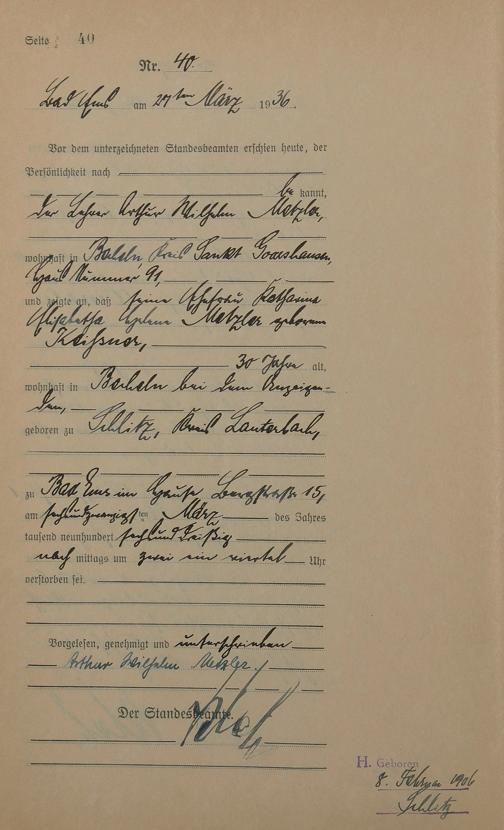 Seite 40
Nr. 40.
Bad Ems am 27ten März 1936.
Vor dem unterzeichneten Standesbeamten erschien heute, der
Persönlichkeit nach
be kannt,
der Lehrer Arthur Wilhelm Metzler,
wohnhaft in Kreis Sankt Goarshausen,
Haus Nummer 91,
und zeigte an, daß seine Ehefrau Katharina
Elisabetha Helene Metzler geborene
30 Jahre alt,
wohnhaft in bei dem Anzeigen-
den,
geboren zu Schlitz, Kreis Lauterbach,
zu Bad Ems im Hause 15,
am sechsundzwanzigsten März des Jahres
tausend neunhundert sechsunddreißig
nach mittags um zwei ein viertel Uhr
verstorben sei.
Vorgelesen, genehmigt und unterschrieben
Arthur Wilhelm Metzler.
Der Standesbeamte.
H. Geboren
8. Februar 1906
Schlitz